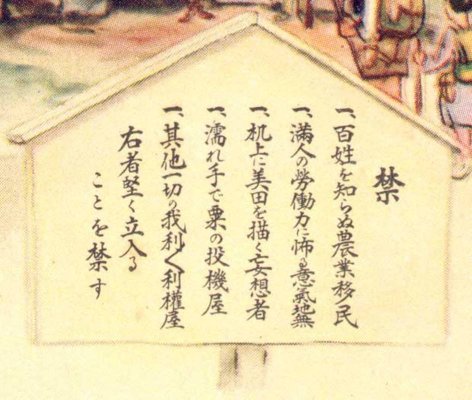 禁
一、百姓を知らぬ農業移民
一、満人の労働力に怖る意氣地無
一、机上に美田を描く妄想者
一、濡れ手で粟の投機屋
一、其他一切の我利〱利權屋
右者堅く立入る
ことを禁す